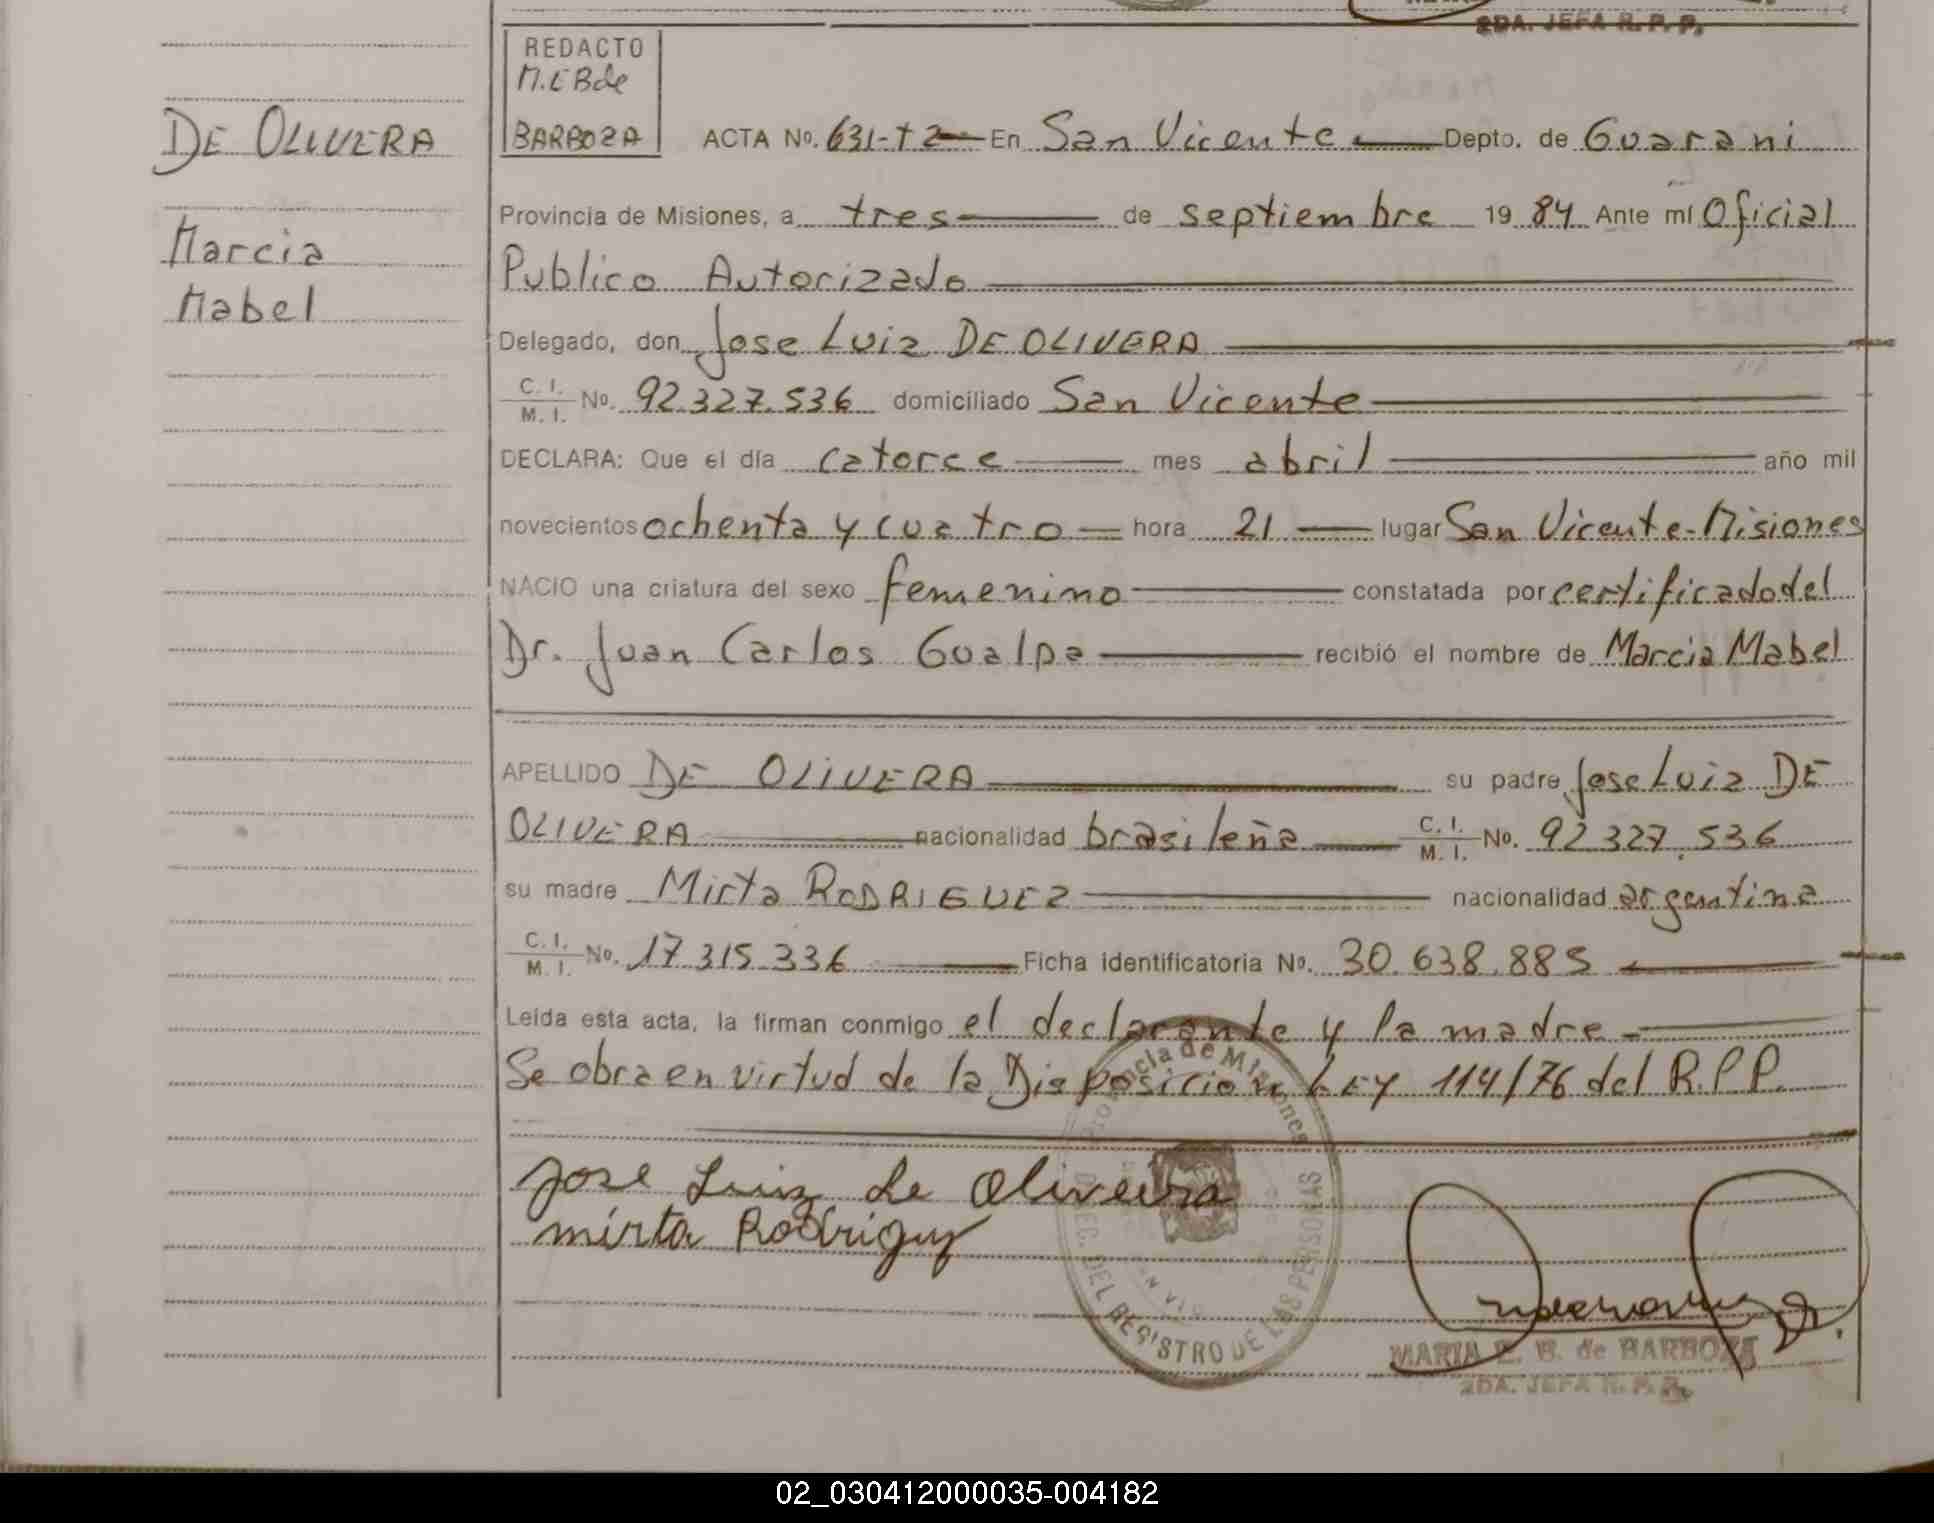 2DA. JEFA R. P. P.
REDACTO
M.E B de
BARBOZA
DE OLIVERA
Marcia
Mabel
ACTA No. 631-T2 En San Vicente Depto. de Guarani
Provincia de Misiones, a tres de septiembre 19 84 Ante mí Oficial
Publico Autorizado
Delegado, don Jose Luiz DE OLIVERA
C. I. / M. I. No. 92.327.536 domiciliado San Vicente
DECLARA: Que el día catorce mes abril año mil
novecientos ochenta y cuatro hora 21 lugar San Vicente-Misiones
NACIO una criatura del sexo femenino constatada por certificado del
Dr. Juan Carlos Gualpa recibió el nombre de Marcia Mabel
APELLIDO DE OLIVERA su padre Jose Luiz DE
OLIVERA nacionalidad brasileña C. I. / M. I. No. 92.327.536
su madre Mirta RODRIGUEZ nacionalidad argentina
C. I. / M. I. No. 17.315.336 Ficha identificatoria No. 30.638.885
Leída esta acta, la firman conmigo el declarante y la madre
Se obra en virtud de la Disposicion LEY 114/76 del R.P.P.
Jose Luiz de Oliveira
mirta Rodriguez
Provincia de Misiones
DIREC. DEL REGISTRO DE LAS PERSONAS
MARIA E. B. de BARBOZA
2DA. JEFA R. P. P.
02_030412000035-004182